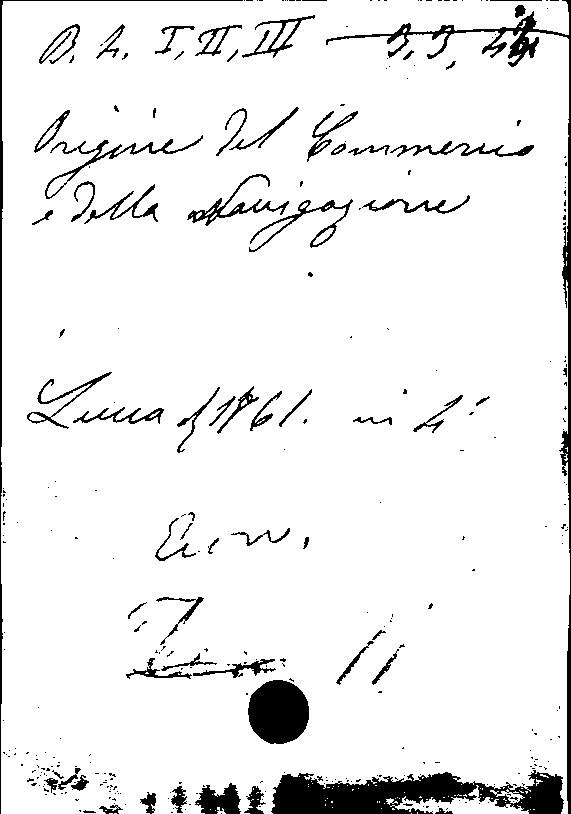 B. L. I, II, III 3, 3,
Origine del Commercio
e della Navigazione
Lucca 1761. in 4º
Econ.